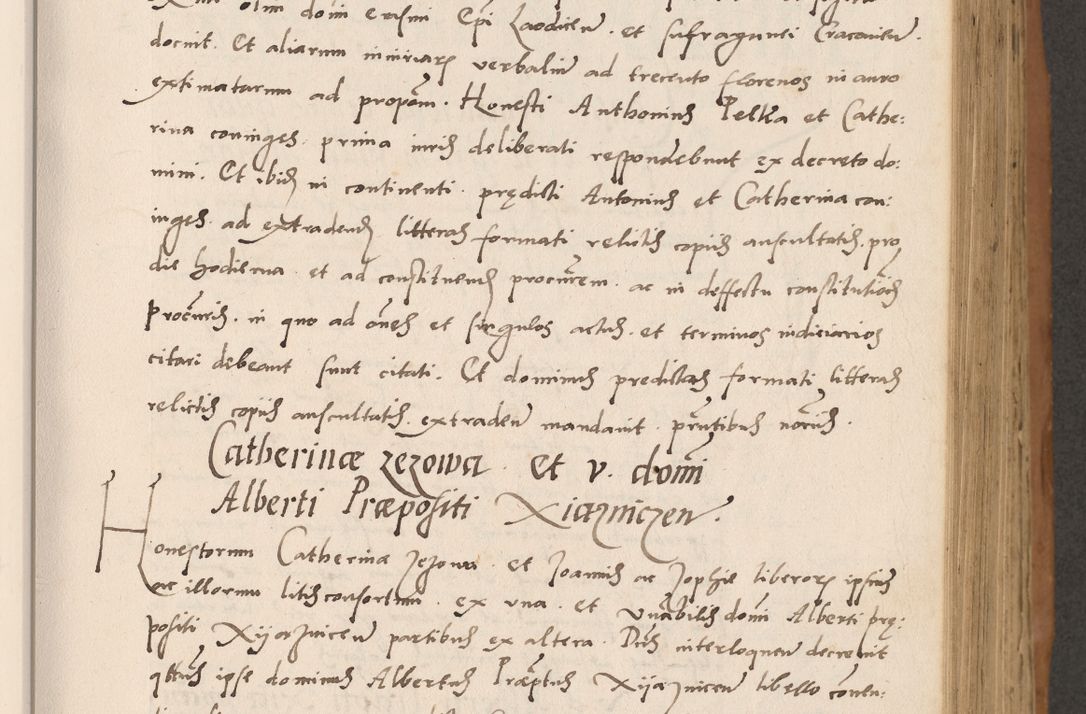 olim domi erasmi Epi Laodicen. et sufraganei Cracovien.
docuit. Et aliarum iniuriarȝ verbaliu ad trecento florenos in auro
extimatarum ad propom. Honesti Anthonius Pelka et Cathe:
rina coniuges. prima iuris deliberati respondebunt ex decreto do:
mini. Et ibid in continenti. prędicti Antonius et Catherina con:
iuges. ad extradend litteras formati relictis copiis auscultatis. pro
die hodierna. et ad constituend procurem. ac in deffectu constitutiois
Procuris. in quo ad ones et singulos actus. et terminos iudiciarios
citari debeant sunt citati. Et dominus predictas formati litteras
relictis copiis auscultatis. extraden mandavit. pntibus notariis.
Catherinæ zezowa. Et v. domi
Alberti Præpositi Xiazniczen.
Honestorum Catherinæ zezowa. et Joannis ac Zophie liberorȝ ipsius
ac illorum litisconsortum. ex una. et Vnabilis domi Alberti prę:
positi Xijaznicen partibus ex altera. Dns interloquen decrevit
qttus ipse dominus Albertus Præptus Xijaznicen libello conue: